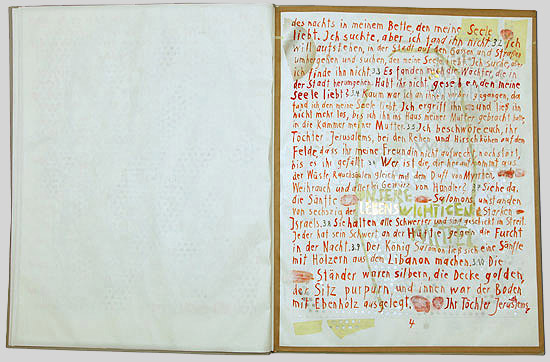 des nachts in meinem Bette, den meine Seele
liebt. Ich suchte, aber ich fand ihn nicht. 3.2 Ich
will aufstehen, in der Stadt auf den Gassen und Straßen
umhergehen und suchen, den meine Seele liebt. Ich suchte, aber
ich finde ihn nicht. 3.3 Es fanden mich die Wächter, die in
der Stadt herumgehen. Habt ihr nicht gesehen, den meine
Seele liebt? 3.4 Kaum war ich an ihnen vorbei gegangen, da
fand ich den meine Seele liebt. Ich ergriff ihn und ließ ihn
nicht mehr los, bis ich ihn ins Haus meiner Mutter gebracht hatte,
in die Kammer meiner Mutter. 3.5 Ich beschwöre euch, ihr
Töchter Jerusalems, bei den Rehen und Hirschkühen auf dem
Felde, dass ihr meine Freundin nicht aufweckt, noch stört,
bis es ihr gefällt. Wer ist die, die heraufkommt aus
der Wüste, Rauchsäulen gleich mit dem Duft von Myrrhen,
Weihrauch und allerlei Gewürz von Händlern? 3.7 Siehe da,
die Sänfte Salomons, umstanden
von sechszig der Starken
Israels. 3.8 Sie halten alle Schwerter und sind geschickt im Streit.
Jeder hat sein Schwert an der Hüfte gegen die Furcht
in der Nacht. 3.9 Der König Salomon ließ sich eine Sänfte
mit Hölzern aus dem Libanon machen. 3.10 Die
Ständer waren silbern, die Decke golden,
der Sitz purpurn, und innen war der Boden
mit Ebenholz ausgelegt. Ihr Töchter Jerusalems,
4
UNSERE
LEBENSWICHTIGEN